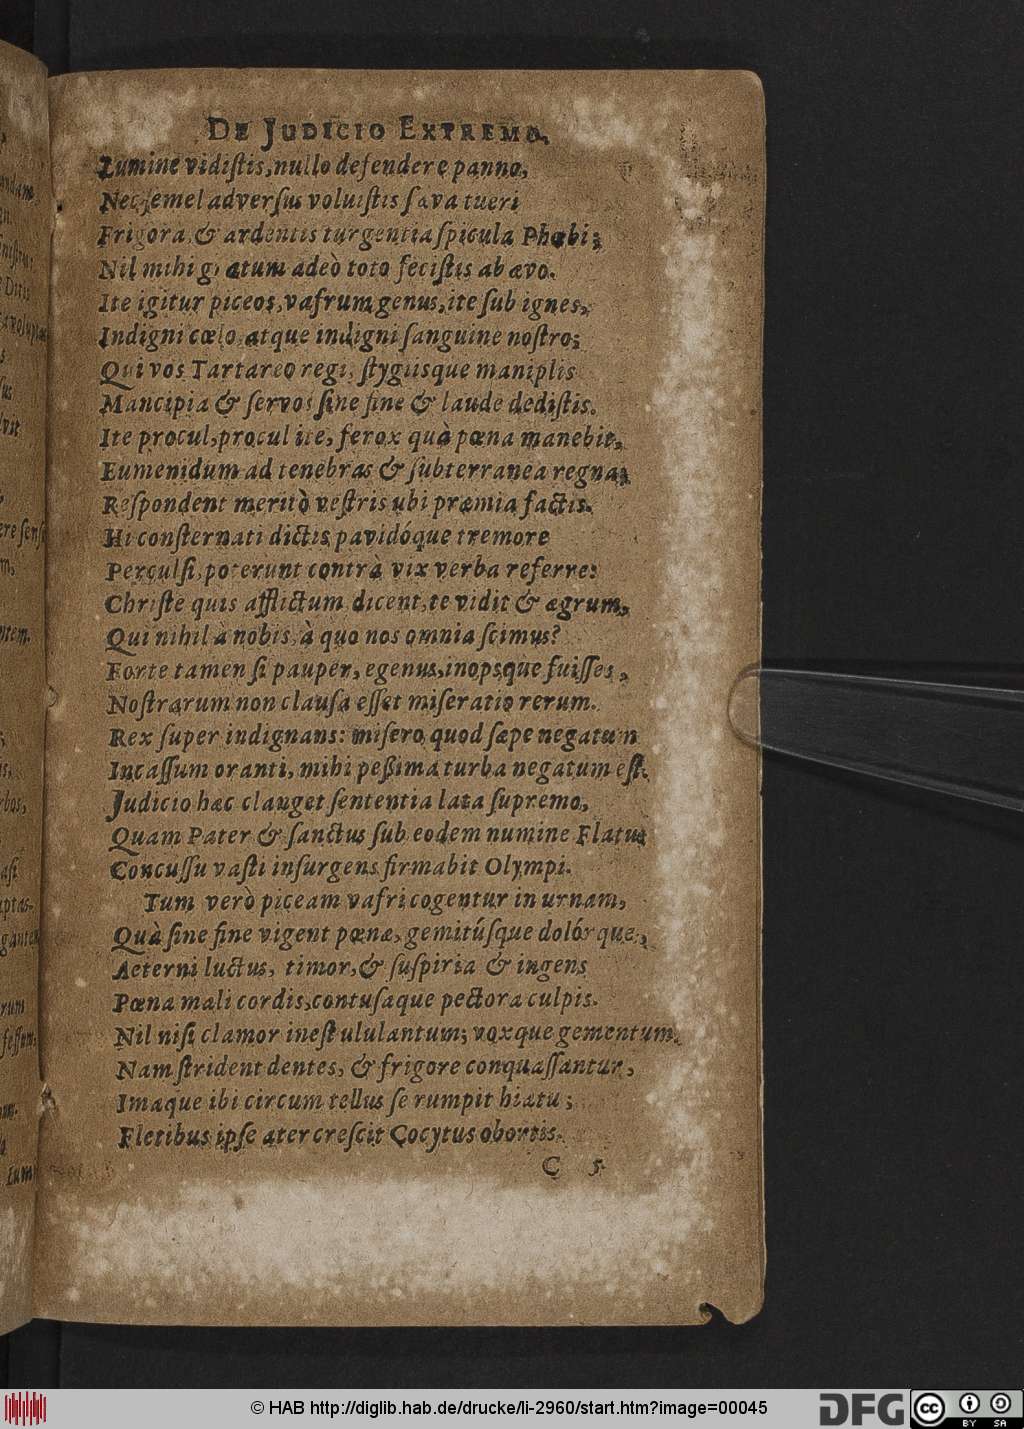 DE JUDICIO EXTREMO.
Lumine vidiſtis, nullo defendere panno,
Nec ſemel adverſus voluiſtis ſæva tueri
Frigora, & ardentis turgentia ſpicula Phœbi;
Nil mihi gratum adeò toto feciſtis ab ævo.
Ite igitur piceos, vafrum genus, ite ſub ignes,
Indigni cœlo, atque indigni ſanguine noſtro;
Qui vos Tartareo regi, ſtygiisque maniplis
Mancipia & ſervos ſine fine & laude dediſtis.
Ite procul, procul ite, ferox quà pœna manebit,
Eumenidum ad tenebras & ſubterranea regna;
Reſpondent meritò veſtris ubi præmia factis.
Hi conſternati dictis pavidóque tremore
Perculſi, poterunt contrà vix verba referre:
Chriſte quis afflictum, dicent, te vidit & ægrum,
Qui nihil à nobis, à quo nos omnia ſcimus?
Forte tamen ſi pauper, egenus, inopsque fuiſſes,
Noſtrarum non clauſa eſſet miſeratio rerum.
Rex ſuper indignans: miſero quod ſæpe negatum
Incaſſum oranti, mihi peßima turba negatum eſt.
Judicio hæc clanget ſententia lata ſupremo,
Quam Pater & ſanctus ſub eodem numine Flatus
Concuſſu vaſti inſurgens firmabit Olympi.
Tum verò piceam vafri cogentur in urnam,
Quà ſine fine vigent pœnæ, gemitúſque dolórque,
Aeterni luctus, timor, & ſuſpiria & ingens
Pœna mali cordis, contuſaque pectora culpis.
Nil niſi clamor ineſt ululantum; voxque gementum.
Nam ſtrident dentes, & frigore conquaſſantur,
Imaque ibi circum tellus ſe rumpit hiatu;
Fletibus ipſe ater creſcit Cocytus obortis.
C 5
Lum
© HAB http://diglib.hab.de/drucke/li-2960/start.htm?image=00045
DFG
cc
BY SA